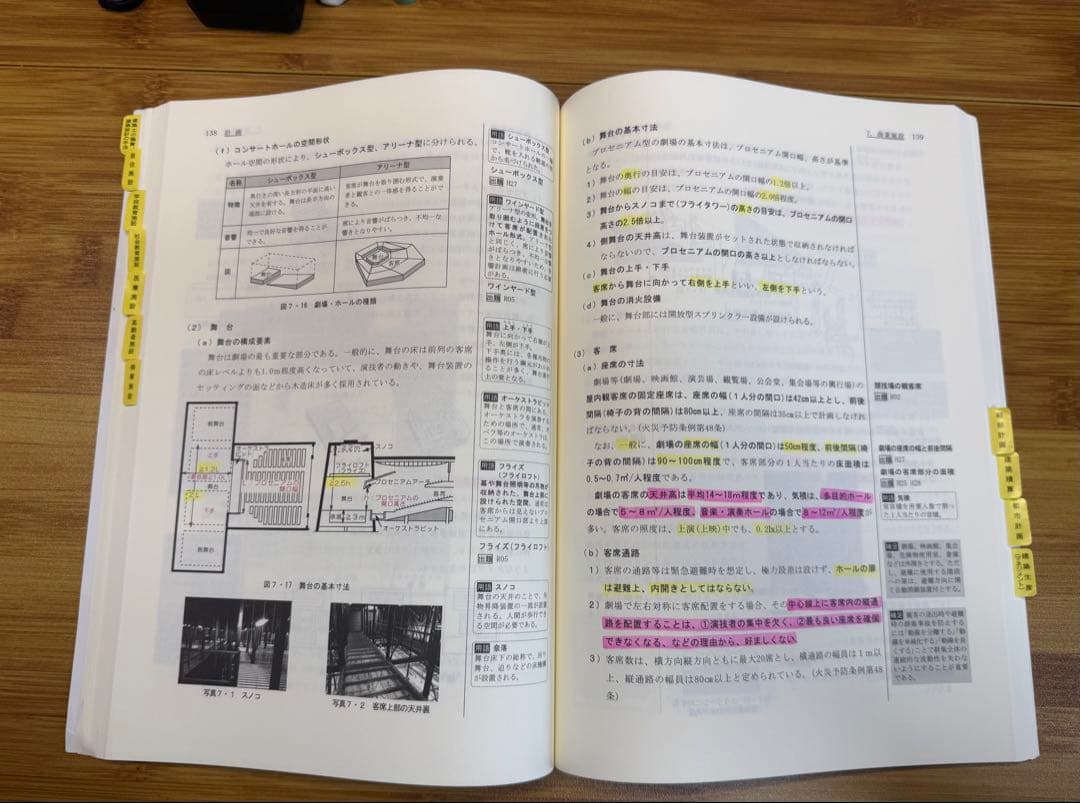 138 計画
(f) コンサートホールの空間形状
ホール空間の形状により、シューボックス型、アリーナ型に分けられる。
名称 シューボックス型 アリーナ型
特徴
奥行きの深い長方形の平面に高い
天井を有する。舞台は長手方向の
端部に設ける。
客席が舞台を取り囲む形式で、演奏
者と観客との一体感を得ることがで
きる。
音響
均一で良好な音響を得ることが
できる。
席により音響がばらつき、不均一な
響きとなりやすい。
図
舞台
客席
図7・16 劇場・ホールの種類
(2) 舞台
(a) 舞台の構成要素
舞台は劇場の最も重要な部分である。一般的に、舞台の床は前列の客席
の床レベルよりも1.0m程度高くなっていて、演技者の動きや、舞台装置の
セッティングの面などから木造床が多く採用されている。
側舞台
オーケストラ
ピット
上手
舞台
下手
側舞台
プロセニアムの
開口幅
スノコ
フライロフト
プロセニアムアーチ
舞台
プロセニアムの
開口高さ
奈落
オーケストラピット
図7・17 舞台の基本寸法
写真7・1 スノコ
写真7・2 客席上部の天井裏
用語 シューボックス型
シューボックス型
出題 H27
用語 ワインヤード型
ワインヤード型
出題 R05
用語 上手・下手
用語 オーケストラピット
舞台と客席の間にある、
オーケストラを演奏する
ための場所で、通常、オ
ペラ等のオーケストラは、
この場所で演奏される。
用語 フライズ
(フライロフト)
幕や舞台照明等の吊物が
収納された、舞台上部に
設けられた空間。通常は
客席からは見えないプロ
セニアム開口部より上部
にある。
フライズ(フライロフト)
出題 R05
用語 スノコ
舞台の天井のことで、吊
物昇降装置の一部が設置
される。人間が歩行でき
る空間が必要である。
用語 奈落
舞台床下の総称で、回り
舞台、迫りなどの床機構
が設置される。
7. 商業施設 139
(b) 舞台の基本寸法
プロセニアム型の劇場の基本寸法は、プロセニアム開口幅、高さが基準
となる。
1) 舞台の奥行の目安は、プロセニアムの開口幅の1.2倍以上。
2) 舞台の幅の目安は、プロセニアムの開口幅の2.0倍程度。
3) 舞台からスノコまで(フライタワー)の高さの目安は、プロセニアムの開口
高さの2.5倍以上。
4) 側舞台の天井高は、舞台装置がセットされた状態で収納されなければ
ならないので、プロセニアムの開口の高さ以上としなければならない。
(c) 舞台の上手・下手
客席から舞台に向かって右側を上手といい、左側を下手という。
(d) 舞台の消火設備
一般に、舞台部には開放型スプリンクラー設備が設けられる。
(3) 客席
(a) 座席の寸法
劇場等(劇場、映画館、演芸場、観覧場、公会堂、集会場等の興行場)の
屋内観客席の固定座席は、座席の幅(1人分の間口)は42cm以上とし、前後
間隔(椅子の背の間隔)は80cm以上、座席の間隔は35cm以上で計画しなければ
ならない。(火災予防条例第48条)
なお、一般に、劇場の座席の幅(1人分の間口)は50cm程度、前後間隔(椅
子の背の間隔)は90〜100cm程度で、客席部分の1人当たりの床面積は
0.5〜0.7㎡/人程度である。
劇場の客席の天井高は平均14〜18m程度であり、気積は、多目的ホール
の場合で5〜8㎥/人程度、音楽・演奏ホールの場合で8〜12㎥/人程度が
多い。客席の照度は、上演(上映)中でも、0.2lx以上とする。
(b) 客席通路
1) 客席の通路等は緊急避難時を想定し、極力段差は設けず、ホールの扉
は避難上、内開きとしてはならない。
2) 劇場で左右対称に客席配置をする場合、その中心線上に客席内の縦通
路を配置することは、①演技者の集中を欠く、②最も良い座席を確保
できなくなる、などの理由から、好ましくない。
3) 客席数は、横方向縦方向ともに最大20席とし、横通路の幅員は1m以
上、縦通路の幅員は80cm以上と定められている。(火災予防条例第48
条)
競技場の観客席
出題 R02
劇場の座席の幅と前後間隔
出題 H27
劇場の客席部分の面積
用語 気積
補足
補足
都市計画